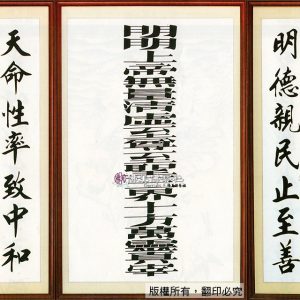 明德親民止至善
明明上帝無量清虛至尊至聖三界十方萬靈真宰
天命性率致中和
版權所有，翻印必究